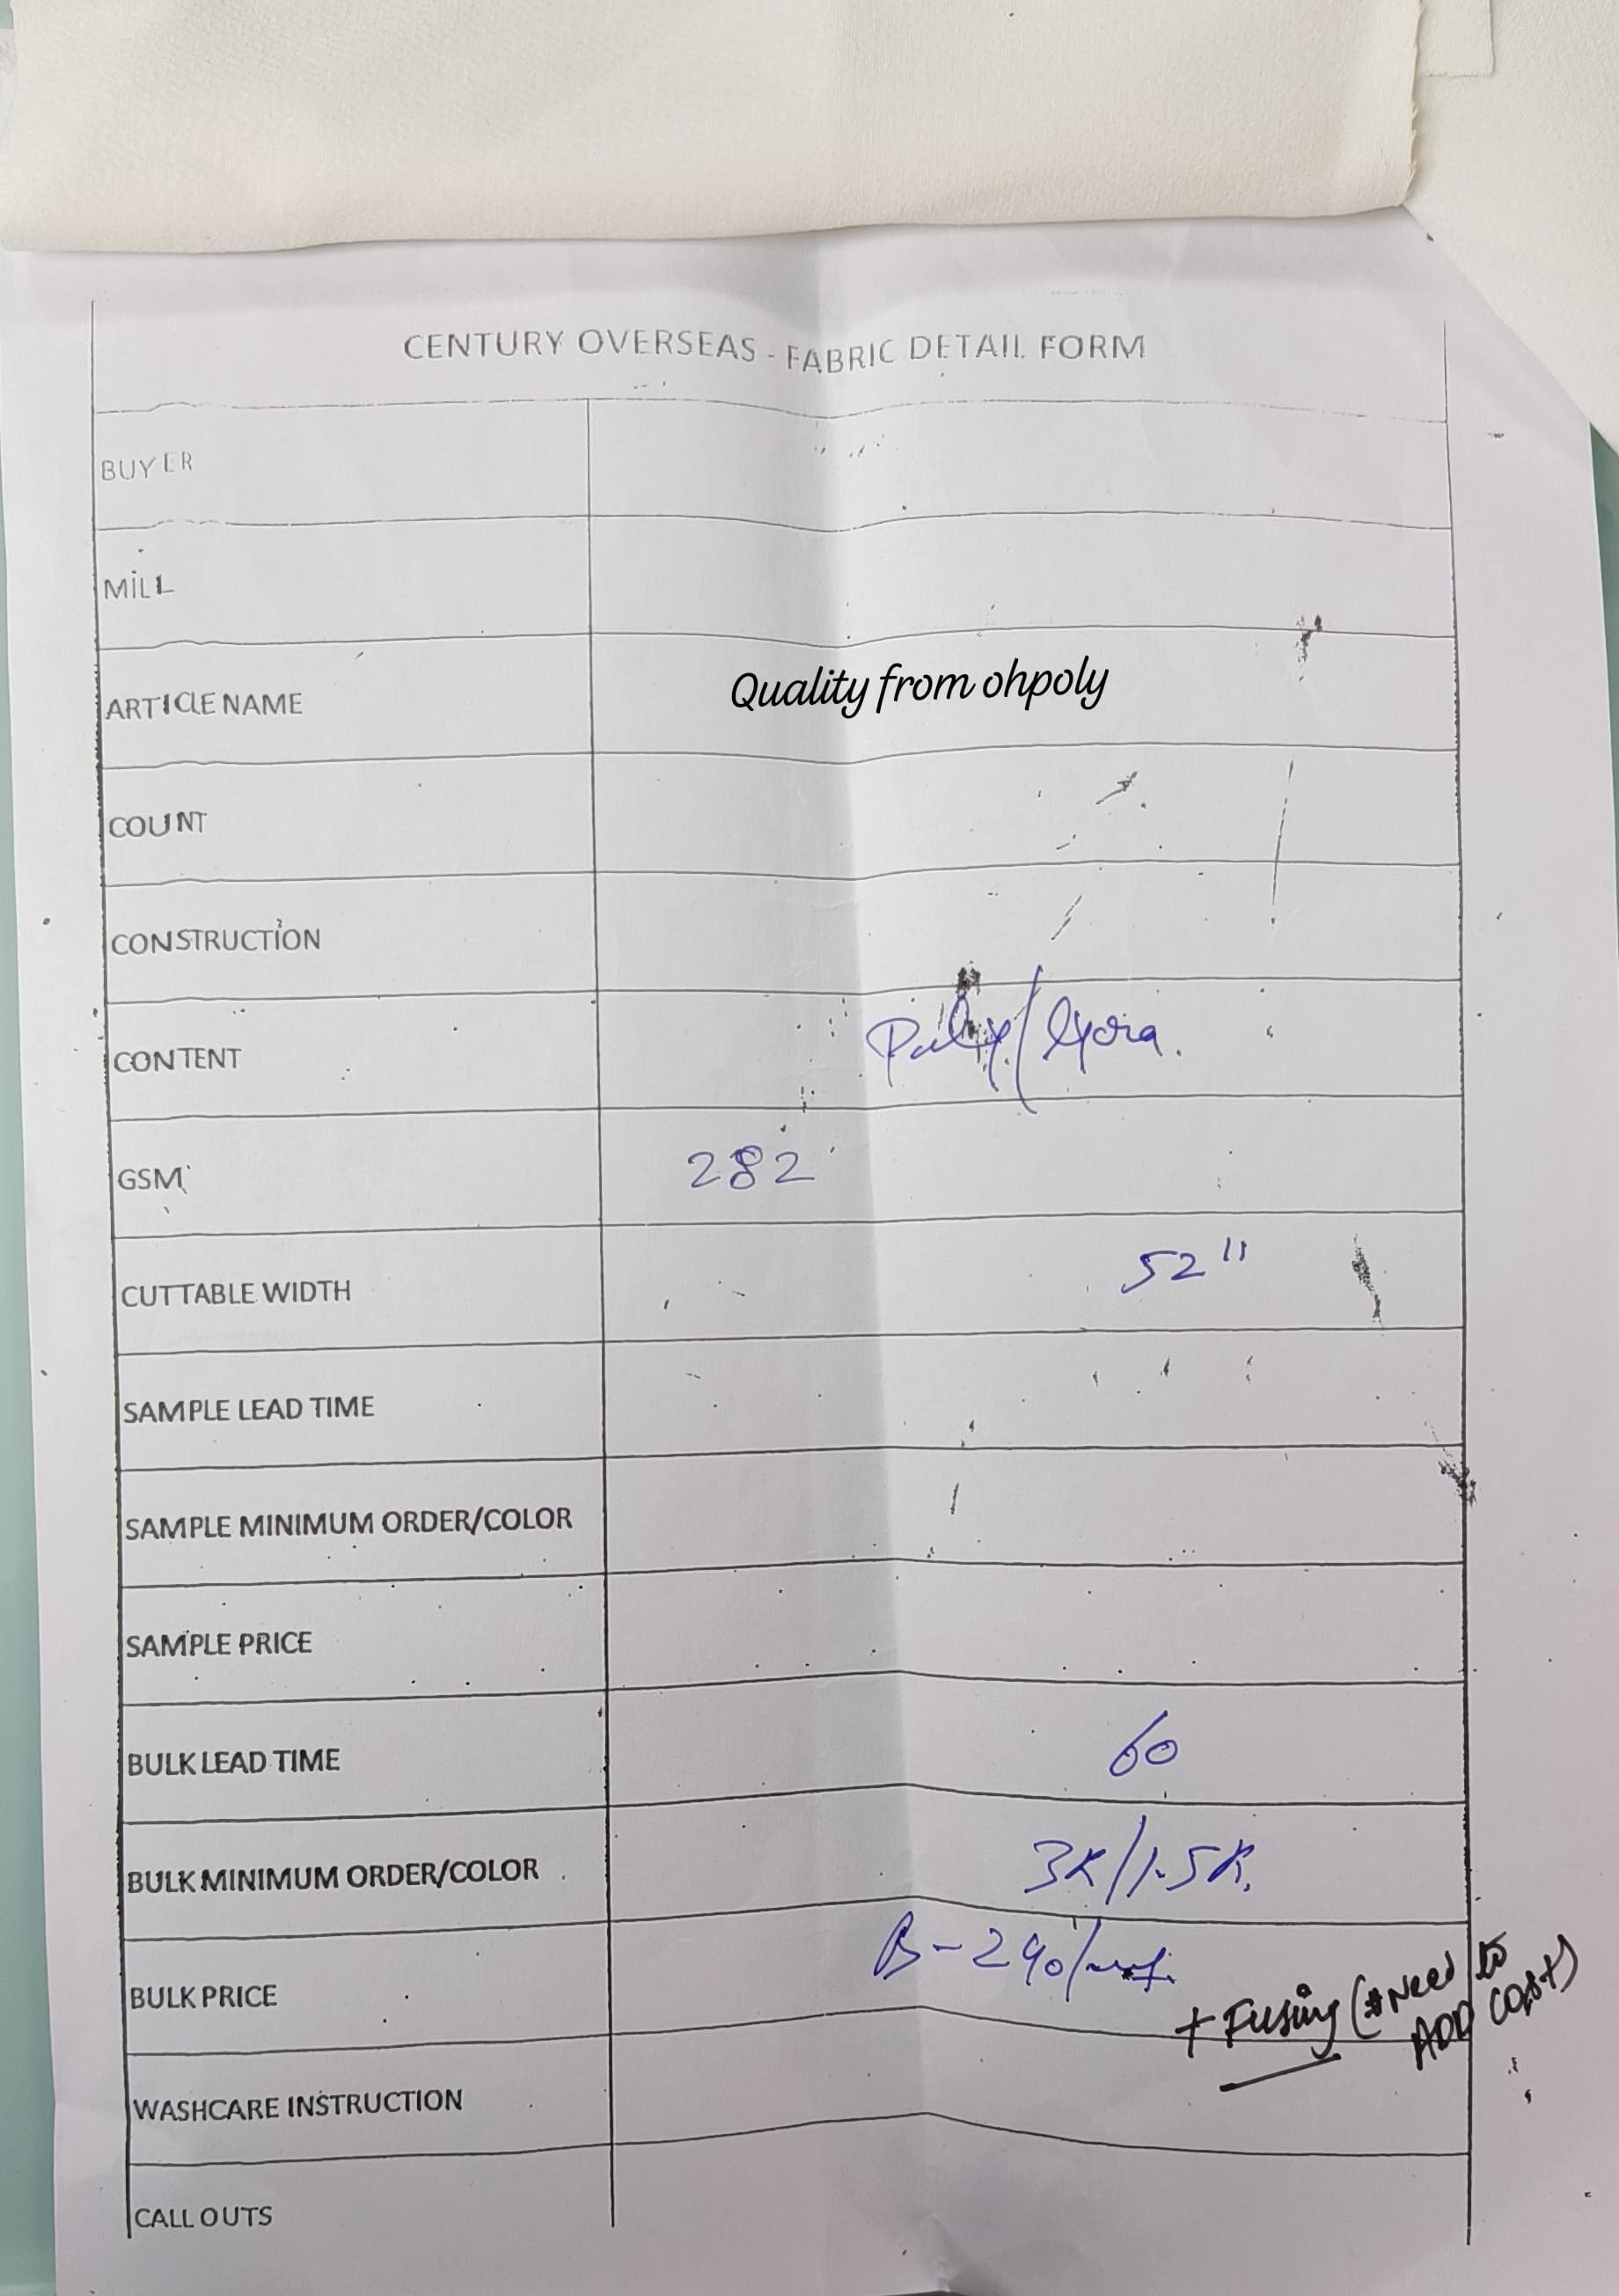 CENTURY OVERSEAS - FABRIC DETAIL FORM
BUYER
MILL
ARTICLE NAME Quality from ohpoly
COUNT
CONSTRUCTION
CONTENT Poly/lycra.
GSM 282
CUTTABLE WIDTH 52"
SAMPLE LEAD TIME
SAMPLE MINIMUM ORDER/COLOR
SAMPLE PRICE
BULK LEAD TIME 60
BULK MINIMUM ORDER/COLOR 3K/1.5K.
BULK PRICE B-290/
+ Fusing (#Need to
ADD COST)
WASHCARE INSTRUCTION
CALL OUTS